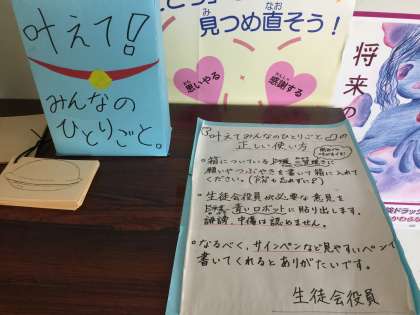 叶えて!
みんなの
ひとりごと。
見つめ直そう!
みつ
なお
思いやる
感謝する
将来の
「叶えてみんなのひとりごと」の
正しい使い方
●箱についている
願いやつぶやきを書いて箱に入れて
ください。
●生徒会役員が必要な意見を
青いロボットに貼り出します。
誹謗、中傷は認めません。
●なるべく、サインペンなど見やすいペンで
書いてくれるとありがたいです。
生徒会役員